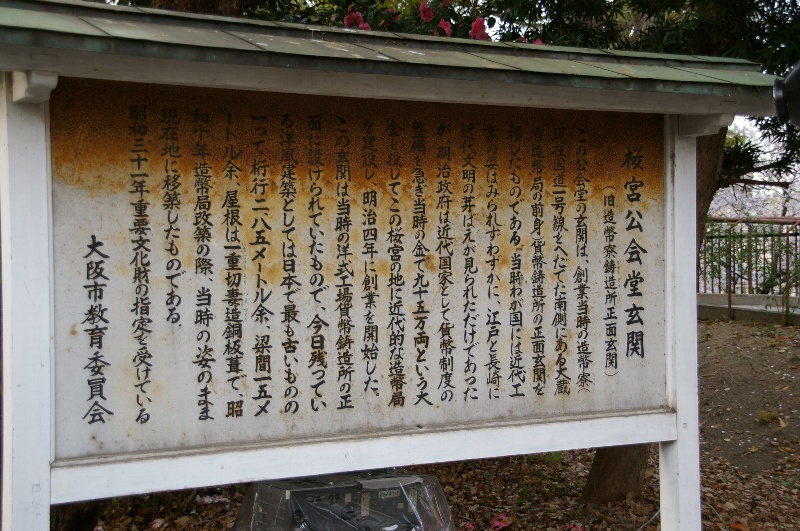 桜宮公会堂玄関
（旧造幣寮鋳造所正面玄関）
この公会堂の玄関は、創業当時の造幣寮
現在国道一号線をへだてた南側にある大蔵
省造幣局の前身）貨幣鋳造所の正面玄関を
移したものである。当時わが国には近代工
業の姿はみられずわずかに、江戸と長崎に
近代文明の芽ばえが見られただけであった
が 明治政府は近代国家として貨幣制度の
整備を急ぎ当時の金で九十五万両という大
金を投じてこの桜宮の地に近代的な造幣局
を建設し 明治四年に創業を開始した。
この玄関は当時の洋式工場貨幣鋳造所の正
面に設けられていたもので、今日残ってい
る洋風建築としては日本で最も古いものの
一つで桁行二八.五メートル余、梁間一五メ
ートル余、屋根は一重切妻造銅板葺で、昭
和十年造幣局改築の際、当時の姿のまま
現在地に移築したものである.
昭和三十一年重要文化財の指定を受けている
大阪市教育委員会